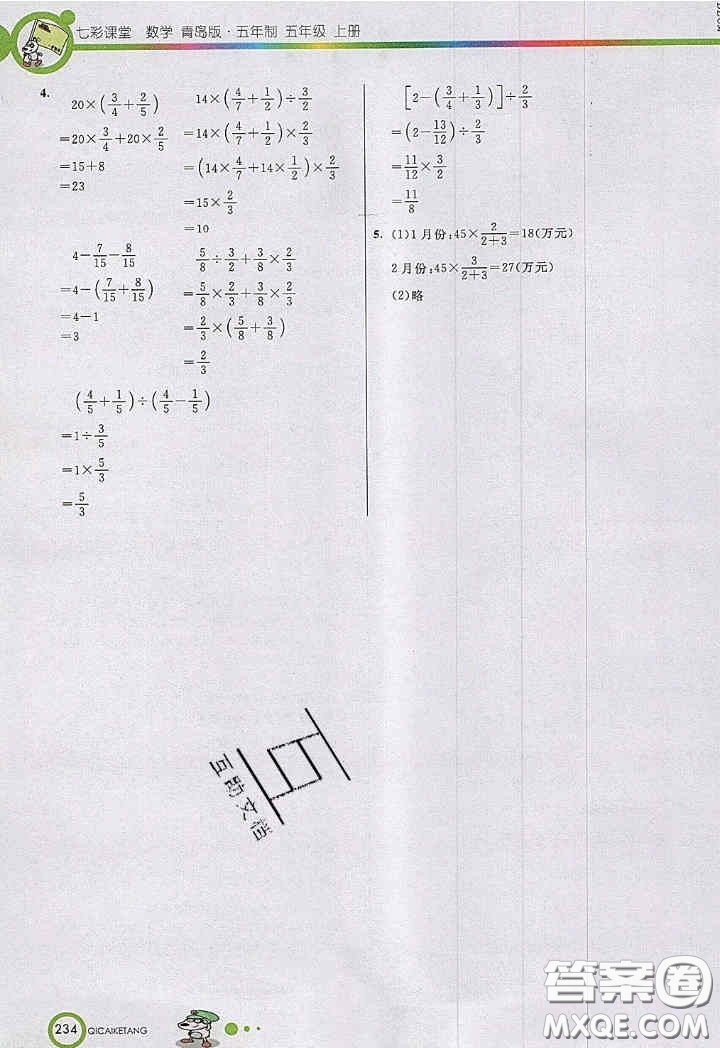 七彩课堂 数学 青岛版·五年制 五年级 上册
4.
20×(3/4+2/5)
=20×3/4+20×2/5
=15+8
=23
14×(4/7+1/2)÷3/2
=14×(4/7+1/2)×2/3
=(14×4/7+14×1/2)×2/3
=15×2/3
=10
4-7/15-8/15
=4-(7/15+8/15)
=4-1
=3
5/8÷3/2+3/8×2/3
=5/8×2/3+3/8×2/3
=2/3×(5/8+3/8)
=2/3
(4/5+1/5)÷(4/5-1/5)
=1÷3/5
=1×5/3
=5/3
[2-(3/4+1/3)]÷2/3
=(2-13/12)÷2/3
=11/12×3/2
=11/8
5. (1)1月份:45×2/(2+3)=18(万元)
2月份:45×3/(2+3)=27(万元)
(2)略
互助文档
234 QICAIKETANG
答案卷
MXQE.COM